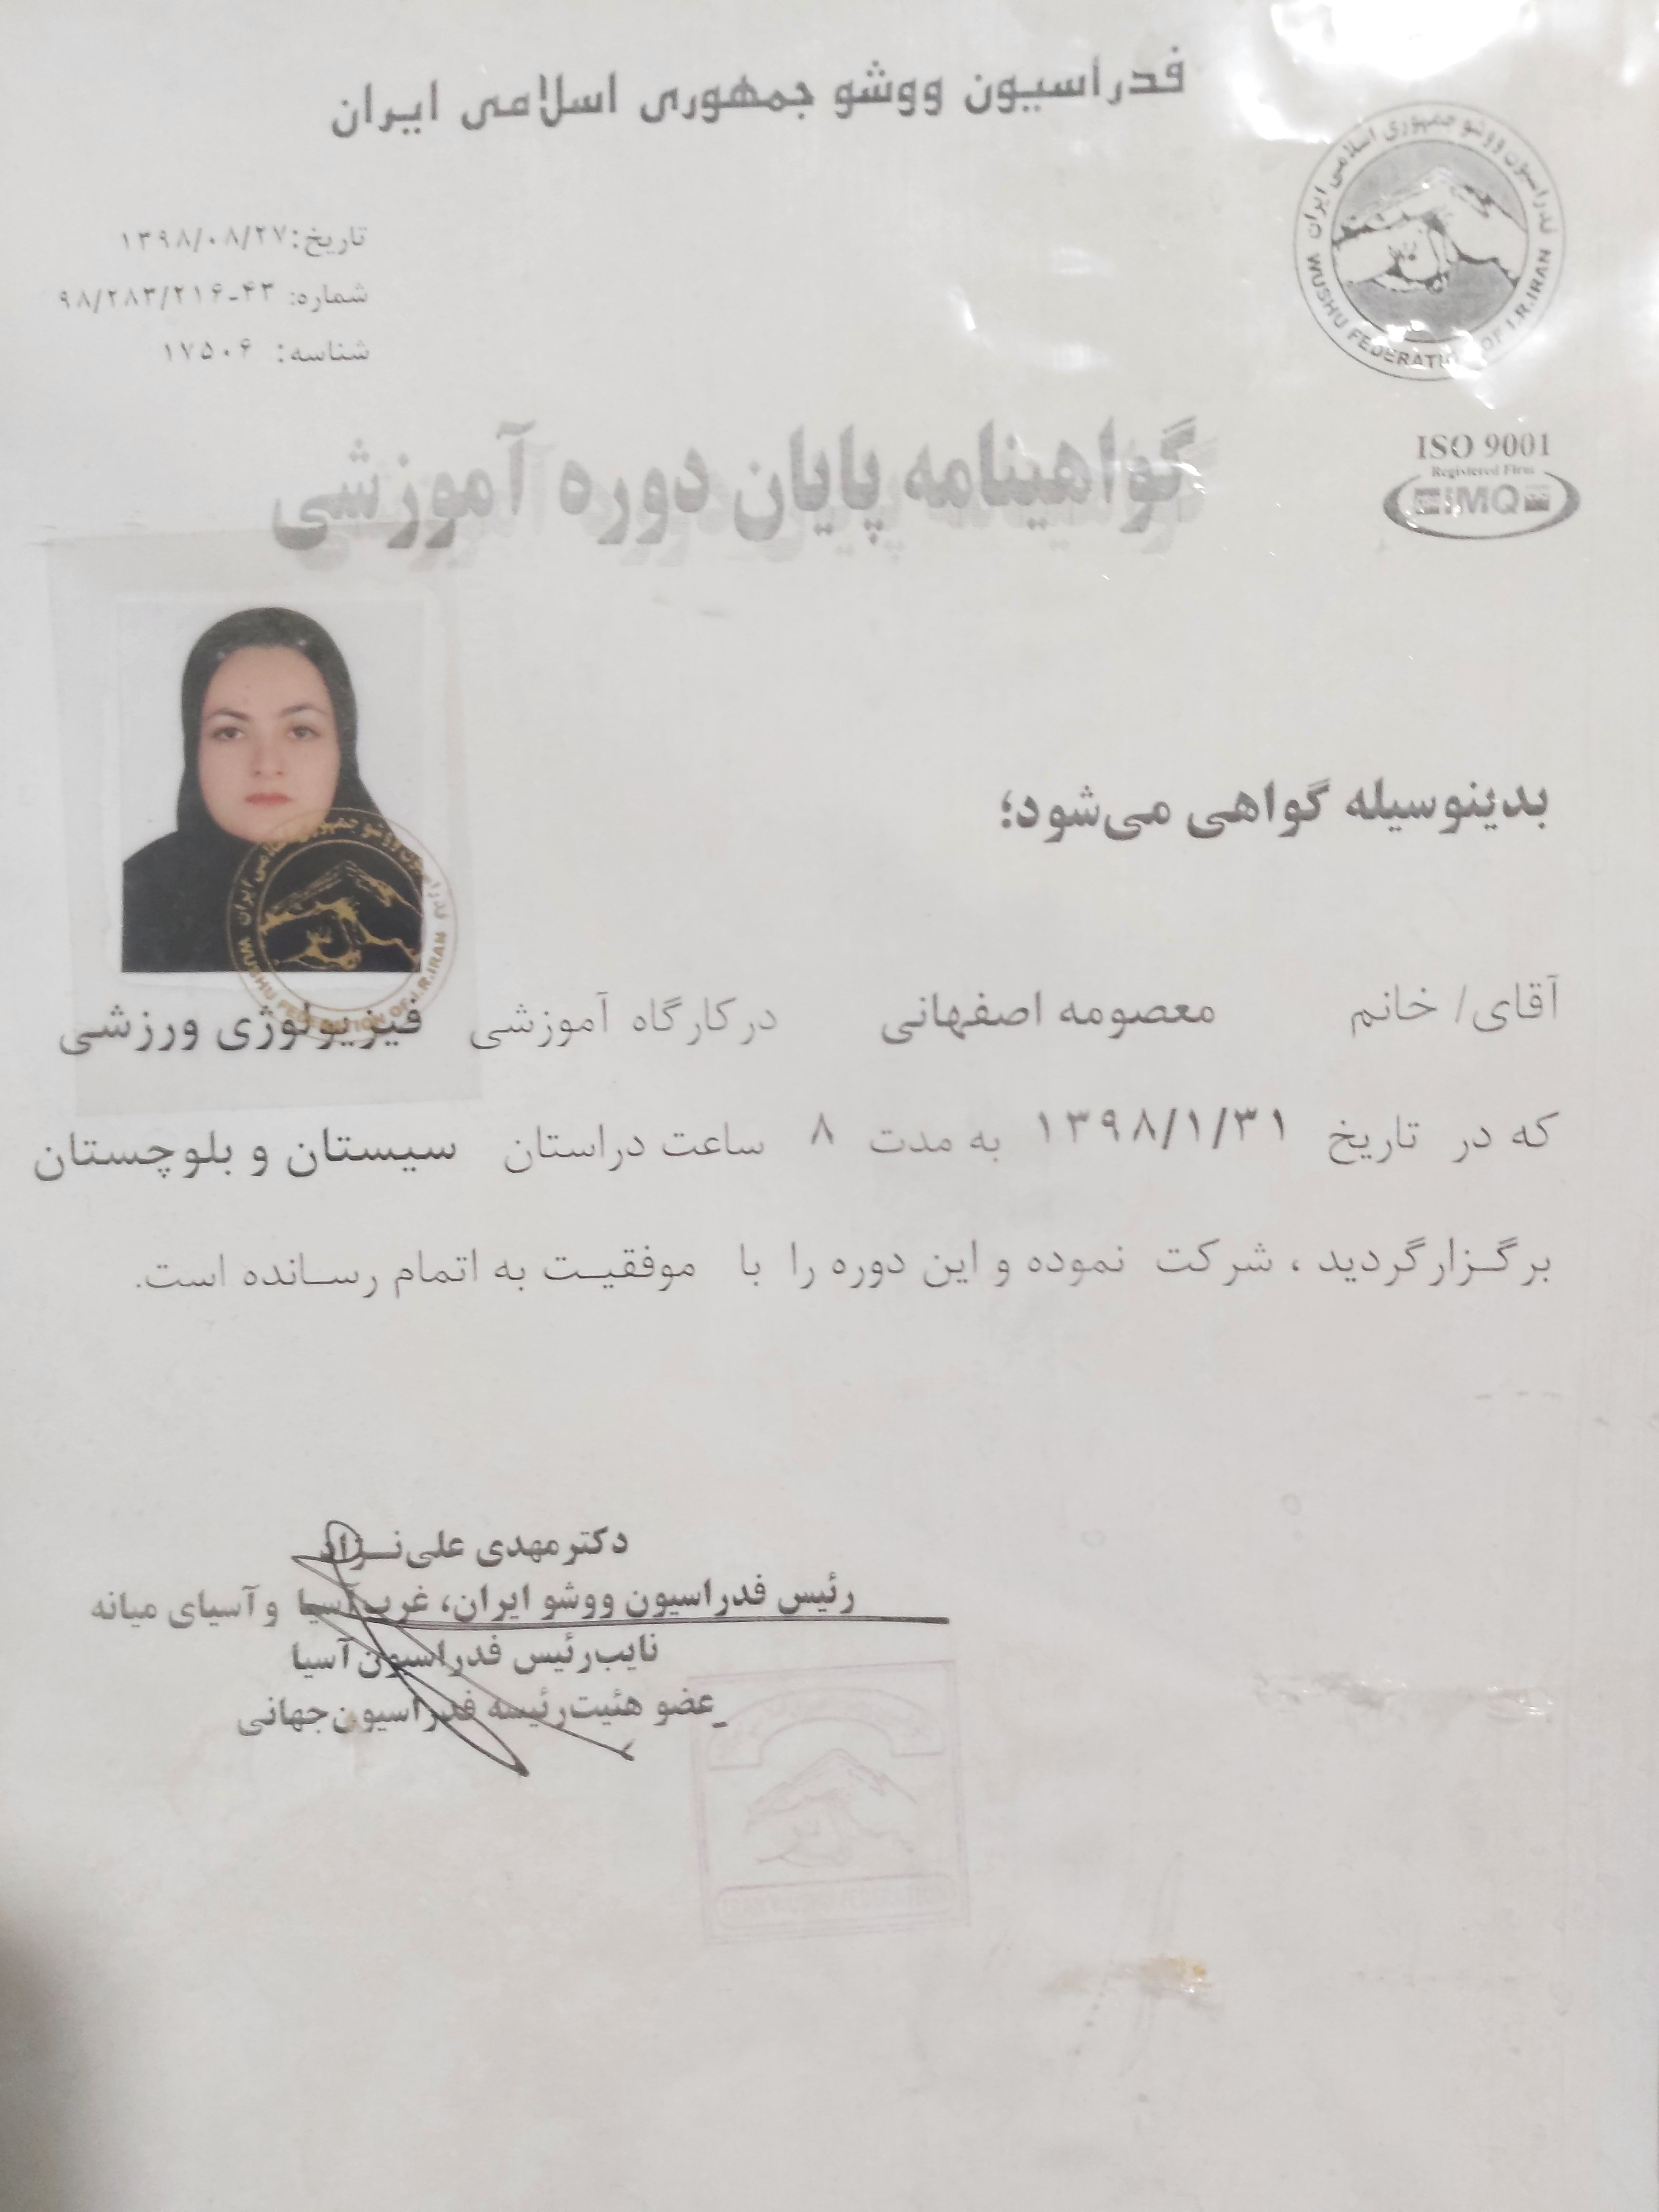 فدراسیون ووشو جمهوری اسلامی ایران
فدراسیون ووشو جمهوری اسلامی ایران
WUSHU FEDERATION OF I.R.IRAN
تاریخ: ۱۳۹۸/۰۸/۲۷
شماره: ۹۸/۲۸۳/۲۱۶-۴۳
شناسه: ۱۷۵۰۶
ISO 9001
Registered Firm
IMQ
گواهینامه پایان دوره آموزشی
بدینوسیله گواهی می‌شود؛
آقای/ خانم معصومه اصفهانی در کارگاه آموزشی فیزیولوژی ورزشی
که در تاریخ ۱۳۹۸/۱/۳۱ به مدت ۸ ساعت دراستان سیستان و بلوچستان
برگزار گردید ، شرکت نموده و این دوره را با موفقیت به اتمام رسانده است.
دکتر مهدی علی‌نژاد
رئیس فدراسیون ووشو ایران، غرب آسیا و آسیای میانه
نایب‌رئیس فدراسیون آسیا
عضو هئیت‌رئیسه فدراسیون‌جهانی